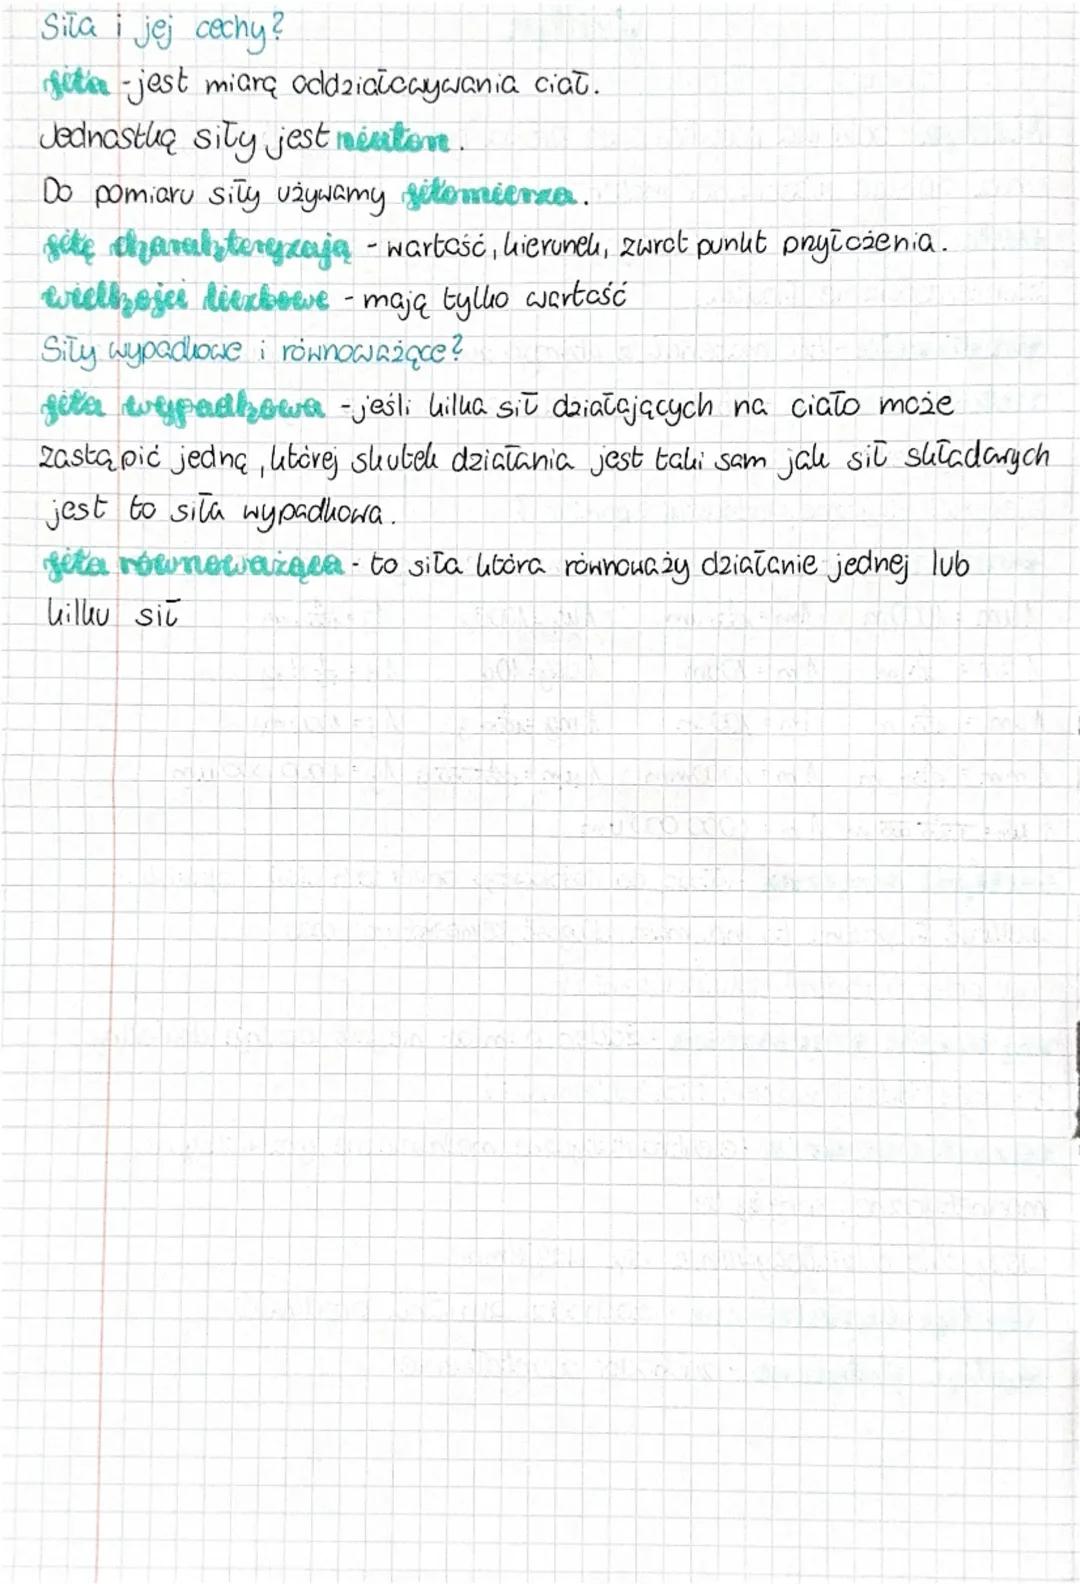 Siła i jej cechy?
siła - jest miarą oddziaływania ciał.
Jednostką siły jest niuton.
Do pomiaru siły używamy siłomierza.
siłę charakteryzają - wartość, kierunek, zwrot punkt przyłożenia.
wielkości liczbowe - mają tylko wartość
Siły wypadkowe i równoważące?
siła wypadkowa - jeśli kilka sił działających na ciało może
zastąpić jedną, której skutek działania jest taki sam jak sił składowych
jest to siła wypadkowa.
siła równoważąca - to siła która równoważy działanie jednej lub
kilku sił